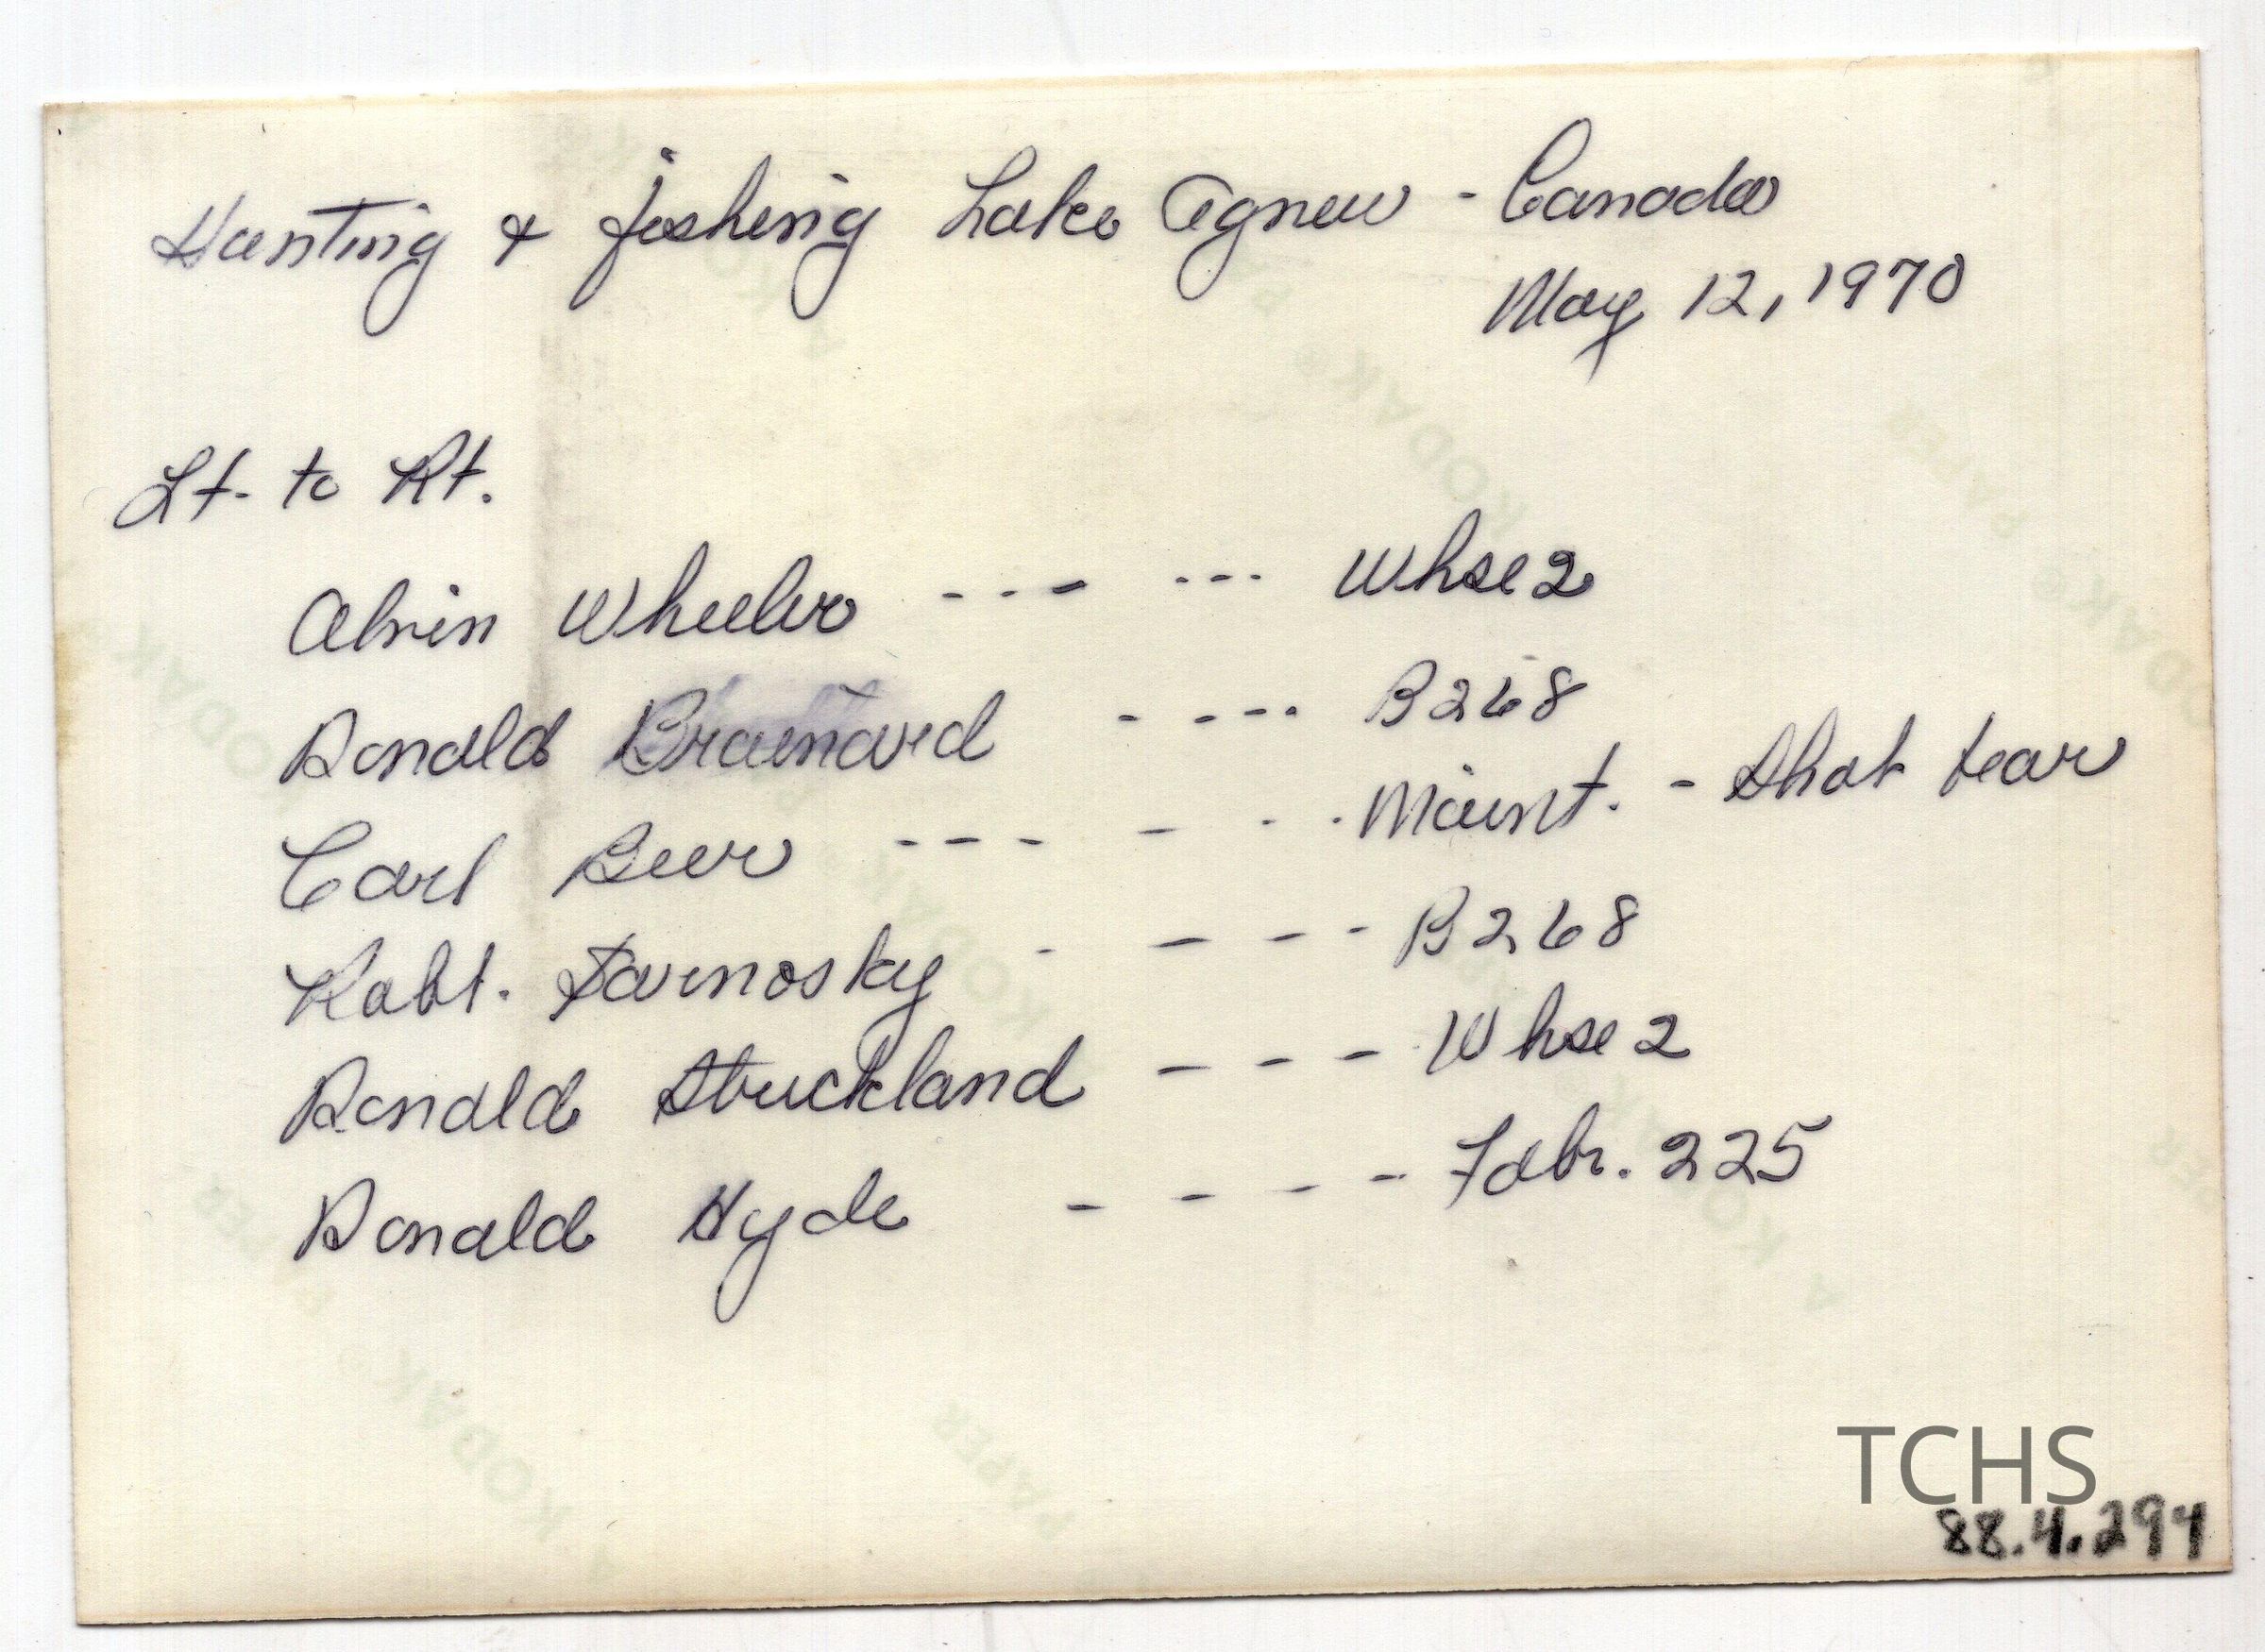 Hunting & fishing Lake Agnew - Canada
May 12, 1970
Lt. to Rt.
Alvin Wheeler --- --- Whse 2
Ronald Brainard ---- B268
Carl Beer --- - - - Maint. - Shot bear
Robt. Sarnosky - - - - - B268
Ronald Struckland - - - Whse 2
Ronald Hyde - - - - Fabr. 225
TCHS
88.4.294